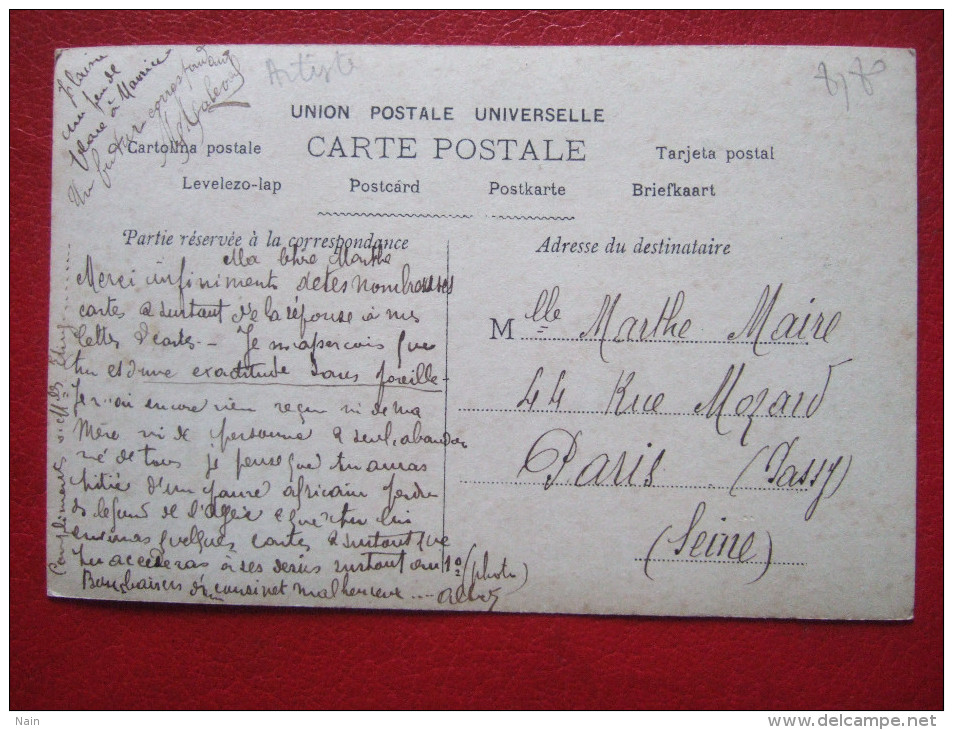 un peu de
place à Maurice
Un futur correspondant
Artiste
UNION POSTALE UNIVERSELLE
Cartolina postale
CARTE POSTALE
Tarjeta postal
Levelezo-lap
Postcárd
Postkarte
Briefkaart
Partie réservée à la correspondance
Adresse du destinataire
Ma chère Marthe
Merci infiniment de tes nombreuses
cartes & surtout de la réponse à mes
lettes & cartes - Je m'aperçois que
tu es d'une exactitude sans pareille -
Je n'ai encore rien reçu ni de ma
Mère ni de personne & seul, abandon
né de tous je pense que tu auras
pitié d'un pauvre africain perdu
ds le fond de l'Algérie & que tu lui
enverras quelques cartes & surtout que
tu accèderas à ses désirs surtout au 1o (photo)
Bons baisers d'1 cousinet malheureux ---
Compliments
Mlle Marthe Maire
44 Rue Mozard
Paris (Passy)
(Seine)
Nain
delcampe.net